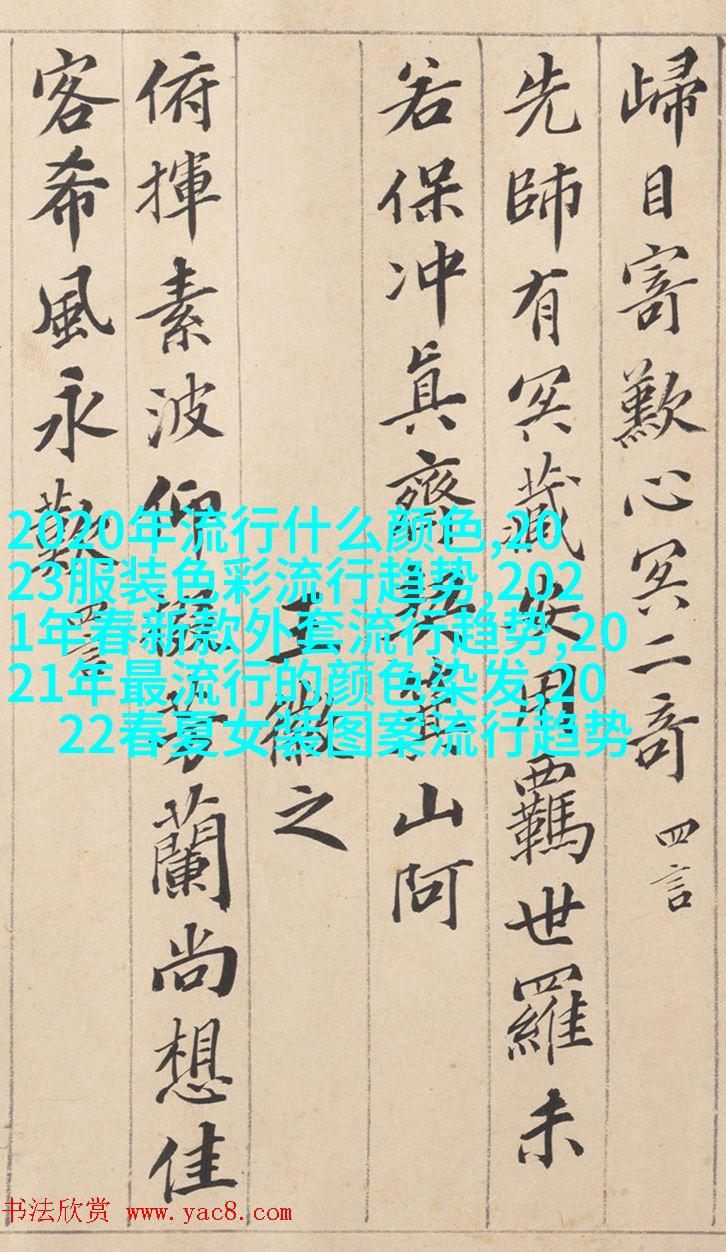 歸目寄歎心冥二奇 四言
先師有冥藏安用羈世羅未
若保冲真齊契箕山阿
王徽之
俯揮素波仰掇芳蘭尚想佳
客希風永歎 四言
2020年流行什么颜色,20
23服装色彩流行趋势,202
1年春新款外套流行趋势,20
21年最流行的颜色染发,20
22春夏女装图案流行趋势
书法欣赏 www.yac8.com